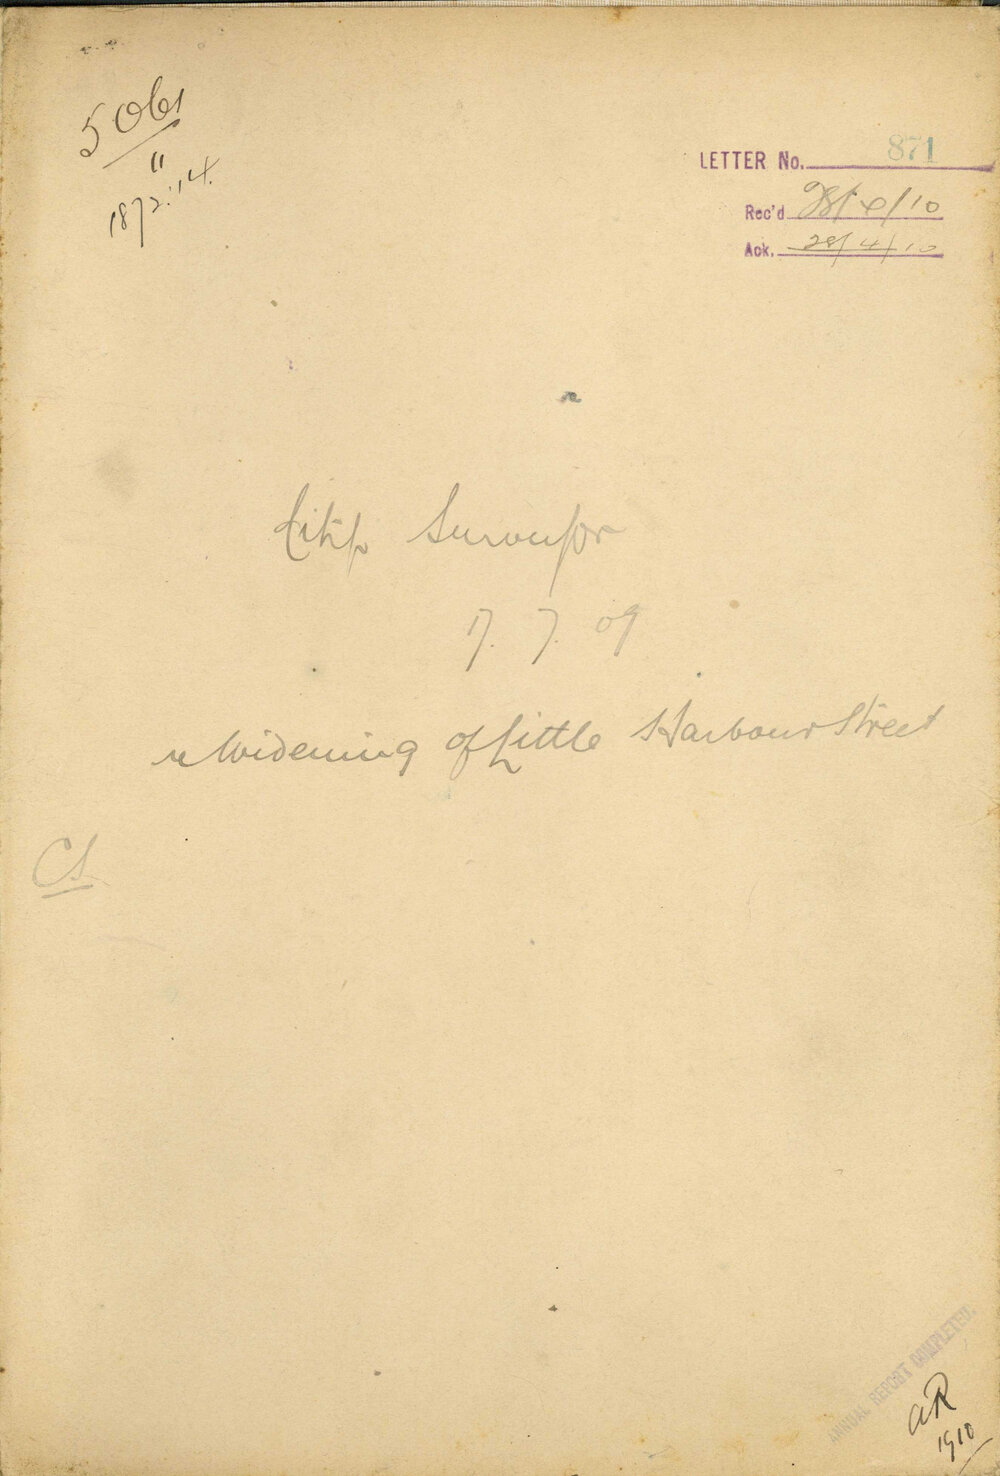 5061
"
1872.'14.
LETTER No. 871
Rec'd 28/4/10
Ack. 28/4/10
City Surveyor
17. 7. 09
re Widening of Little Harbour Street
CS
ANNUAL REPORT COMPLETED.
AR
1910